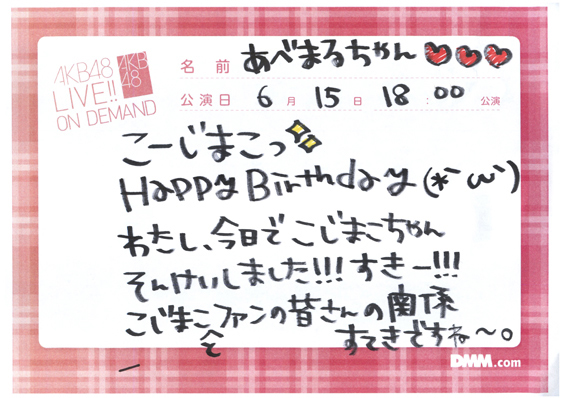 AKB48
LIVE!!
ON DEMAND
AKB
48
名前 あべまるちゃん
公演日 6月15日 18:00 公演
こーじまこっ
Happy Birthday(*´ω`)
わたし、今日でこじまこちゃん
そんけいしました!!!すきー!!!
こじまことファンの皆さんの関係
すてきですね〜。
DMM.com